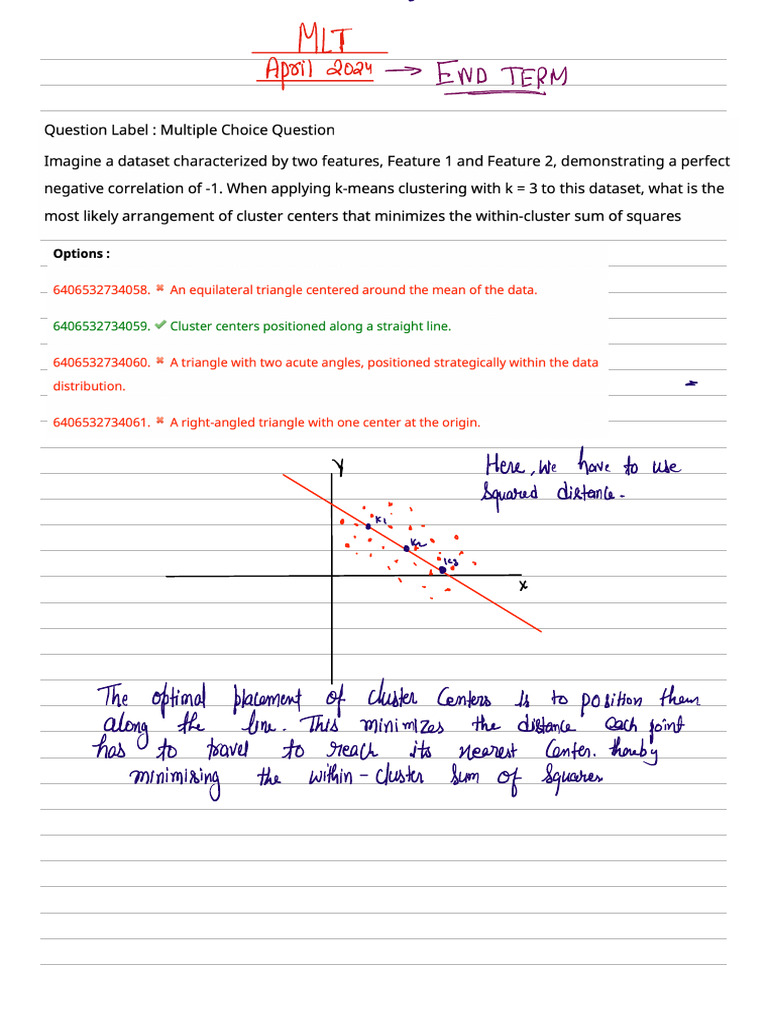 MLT
April 2024 → END TERM
Question Label : Multiple Choice Question
Imagine a dataset characterized by two features, Feature 1 and Feature 2, demonstrating a perfect
negative correlation of -1. When applying k-means clustering with k = 3 to this dataset, what is the
most likely arrangement of cluster centers that minimizes the within-cluster sum of squares
Options :
6406532734058. ✖ An equilateral triangle centered around the mean of the data.
6406532734059. ✔ Cluster centers positioned along a straight line.
6406532734060. ✖ A triangle with two acute angles, positioned strategically within the data
distribution.
6406532734061. ✖ A right-angled triangle with one center at the origin.
Here, we have to use
squared distance.
y
K1
K2
K3
x
The optimal placement of cluster centers is to position them
along the line. This minimizes the distance each point
has to travel to reach its nearest center. thereby
minimizing the within-cluster sum of squares